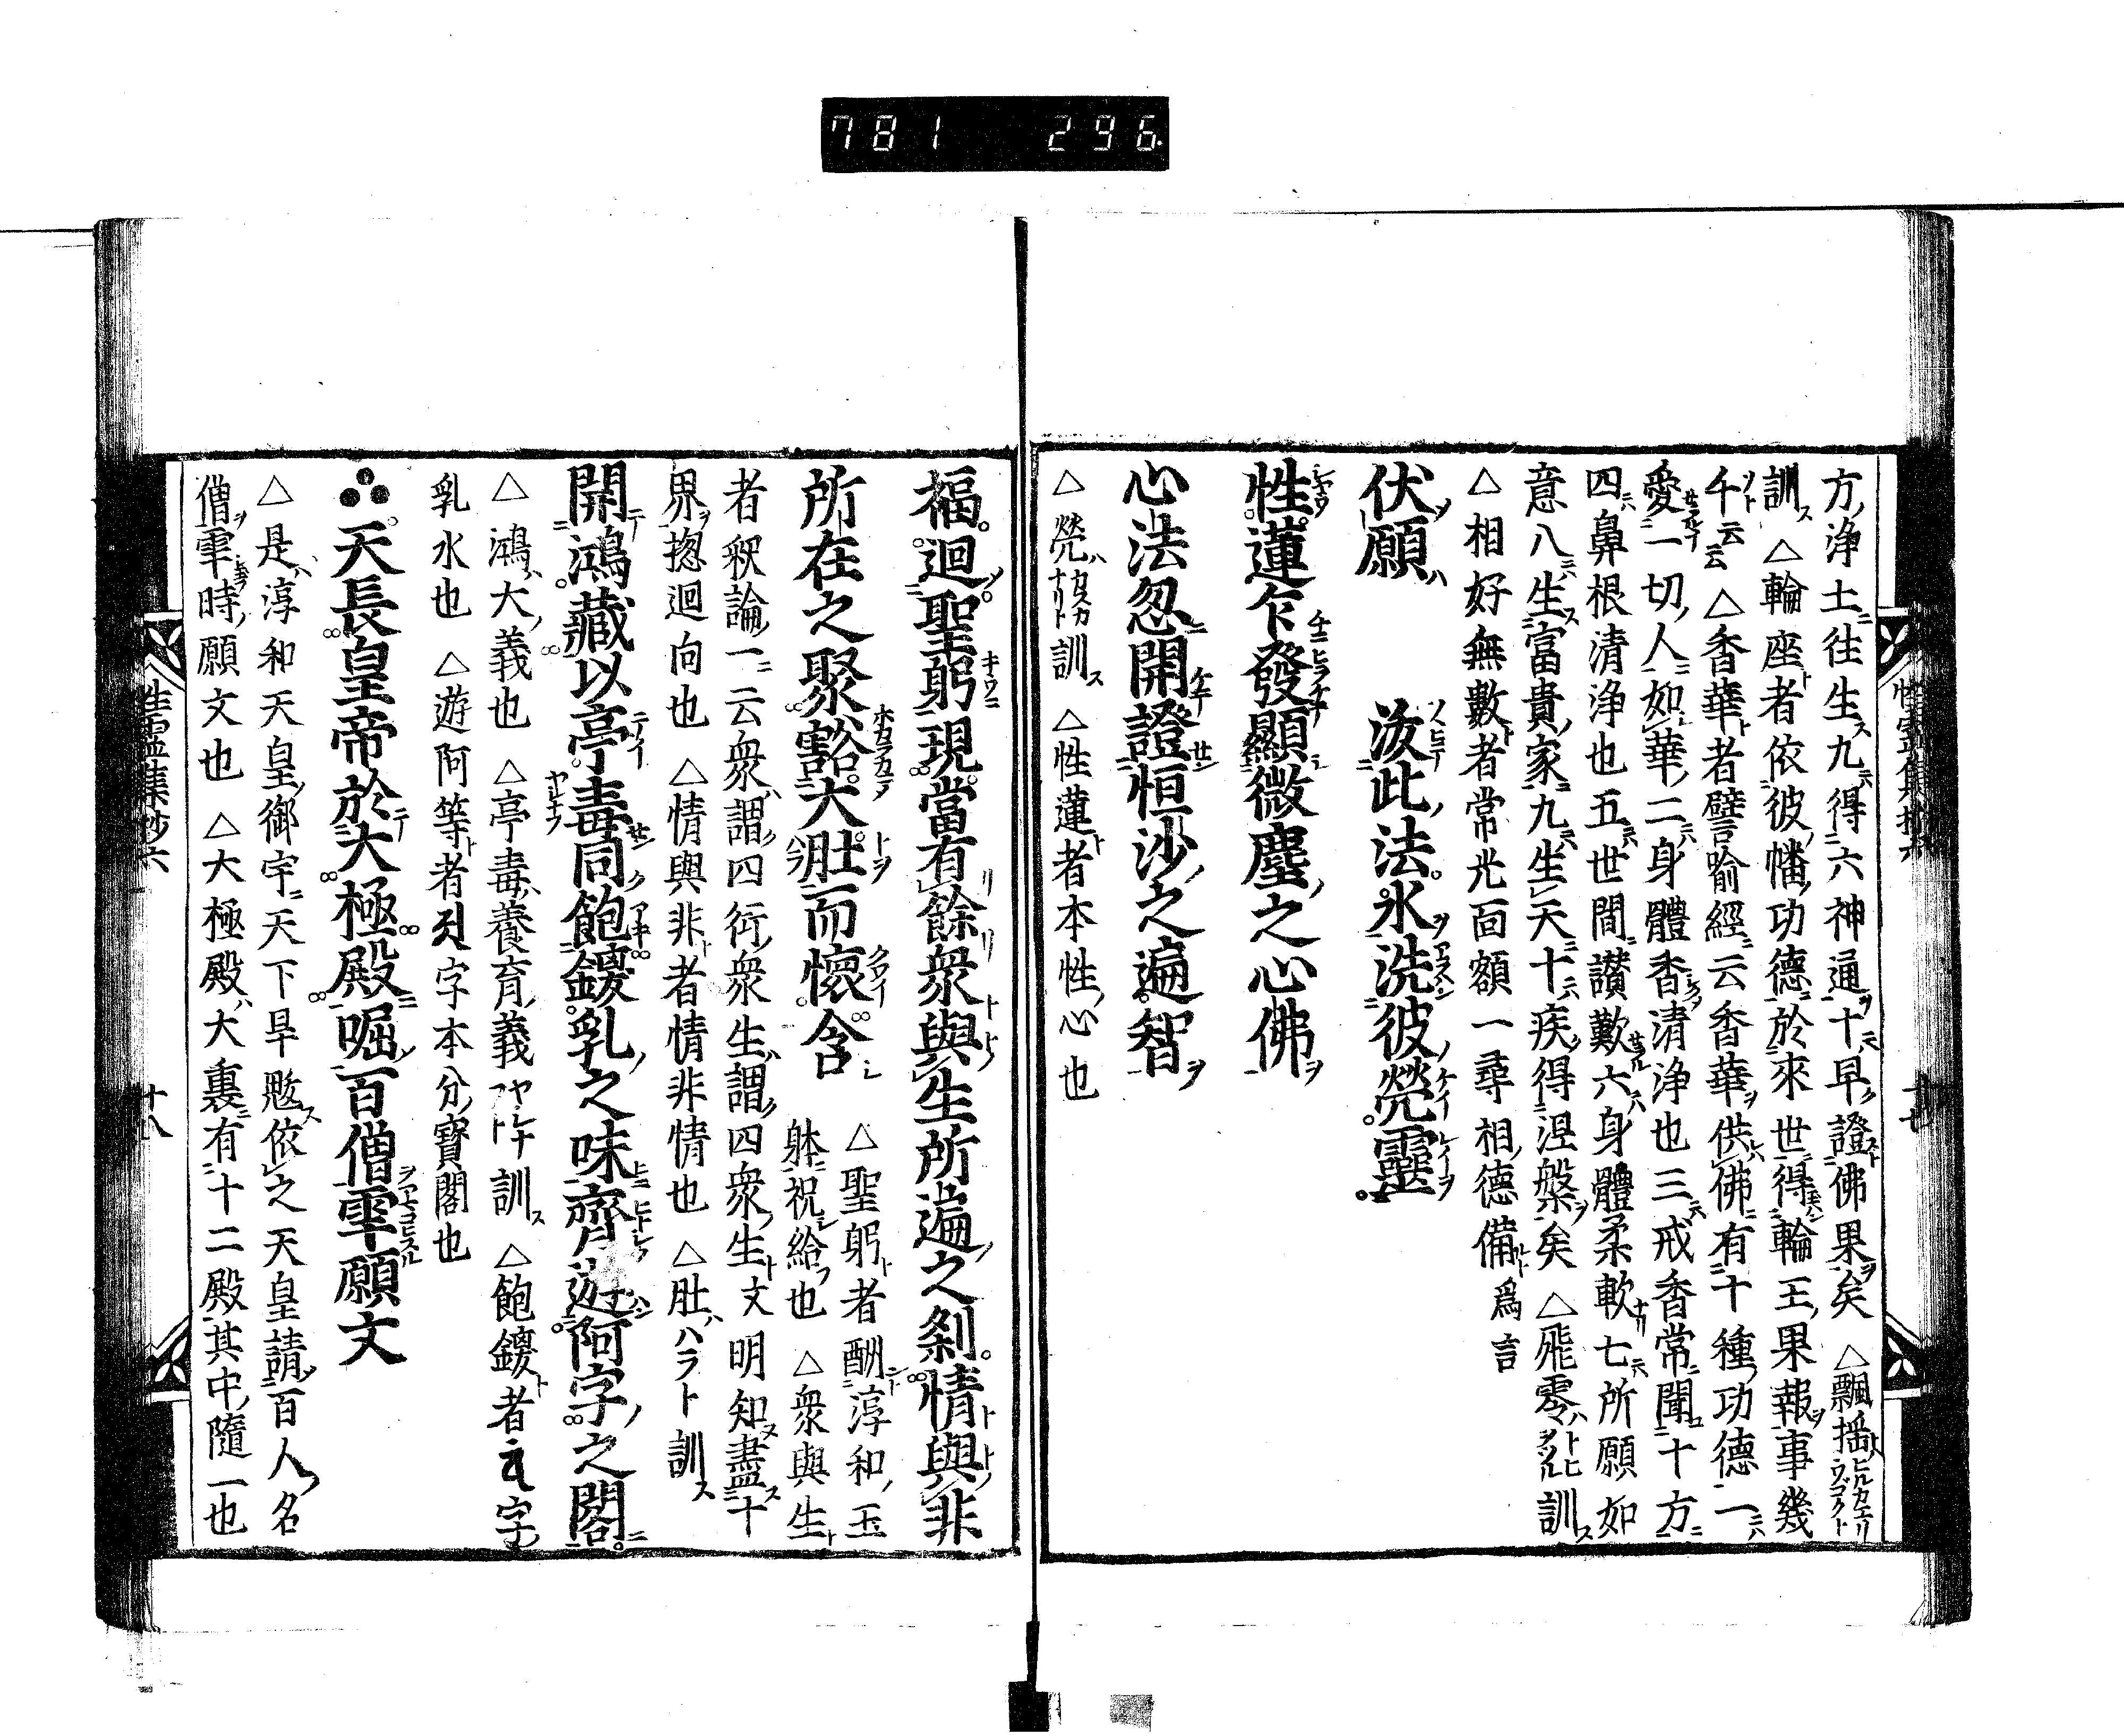 781 296
方浄土往生九得六神通十早證佛果矣△飄揺ヒルカエリウゴクト
訓ス△輪座者依彼幡功德於來世得輪王果報事幾
千云云△香華者譬喻經云香華供佛有十種功德一
愛一切人如華二身體香清浄也三戒香常聞十方
四鼻根清浄也五世間讃歎六身體柔軟七所願如
意八生富貴家九生天十疾得涅槃矣△飛零訓ス
△相好無數者常光面額一尋相德備為言
伏願汲此法水洗彼煢靈
性蓮乍發顯微塵之心佛
心法忽開證恒沙之遍智
△煢訓ス△性蓮者本性心也
福迴聖躬現當有餘衆與生所遍之刹情與非
所在之聚豁大肚而懷含△聖躬者酬淳和玉
躰祝給也△衆與生
者釈論一云衆謂四衍衆生謂四衆生文明知盡十
界揔迴向也△情與非者情非情也△肚ハラト訓ス
開鴻藏以亭毒同飽鑁乳之味齊遊阿字之閣
△鴻大義也△亭毒養育義訓ス△飽鑁者字
乳水也△遊阿等者字本分寶閣也
天長皇帝於大極殿屈百僧雩願文
△是淳和天皇御宇天下旱魃依之天皇請百人名
僧雩時願文也△大極殿大裏有十二殿其中隨一也
性霊集抄六
十八